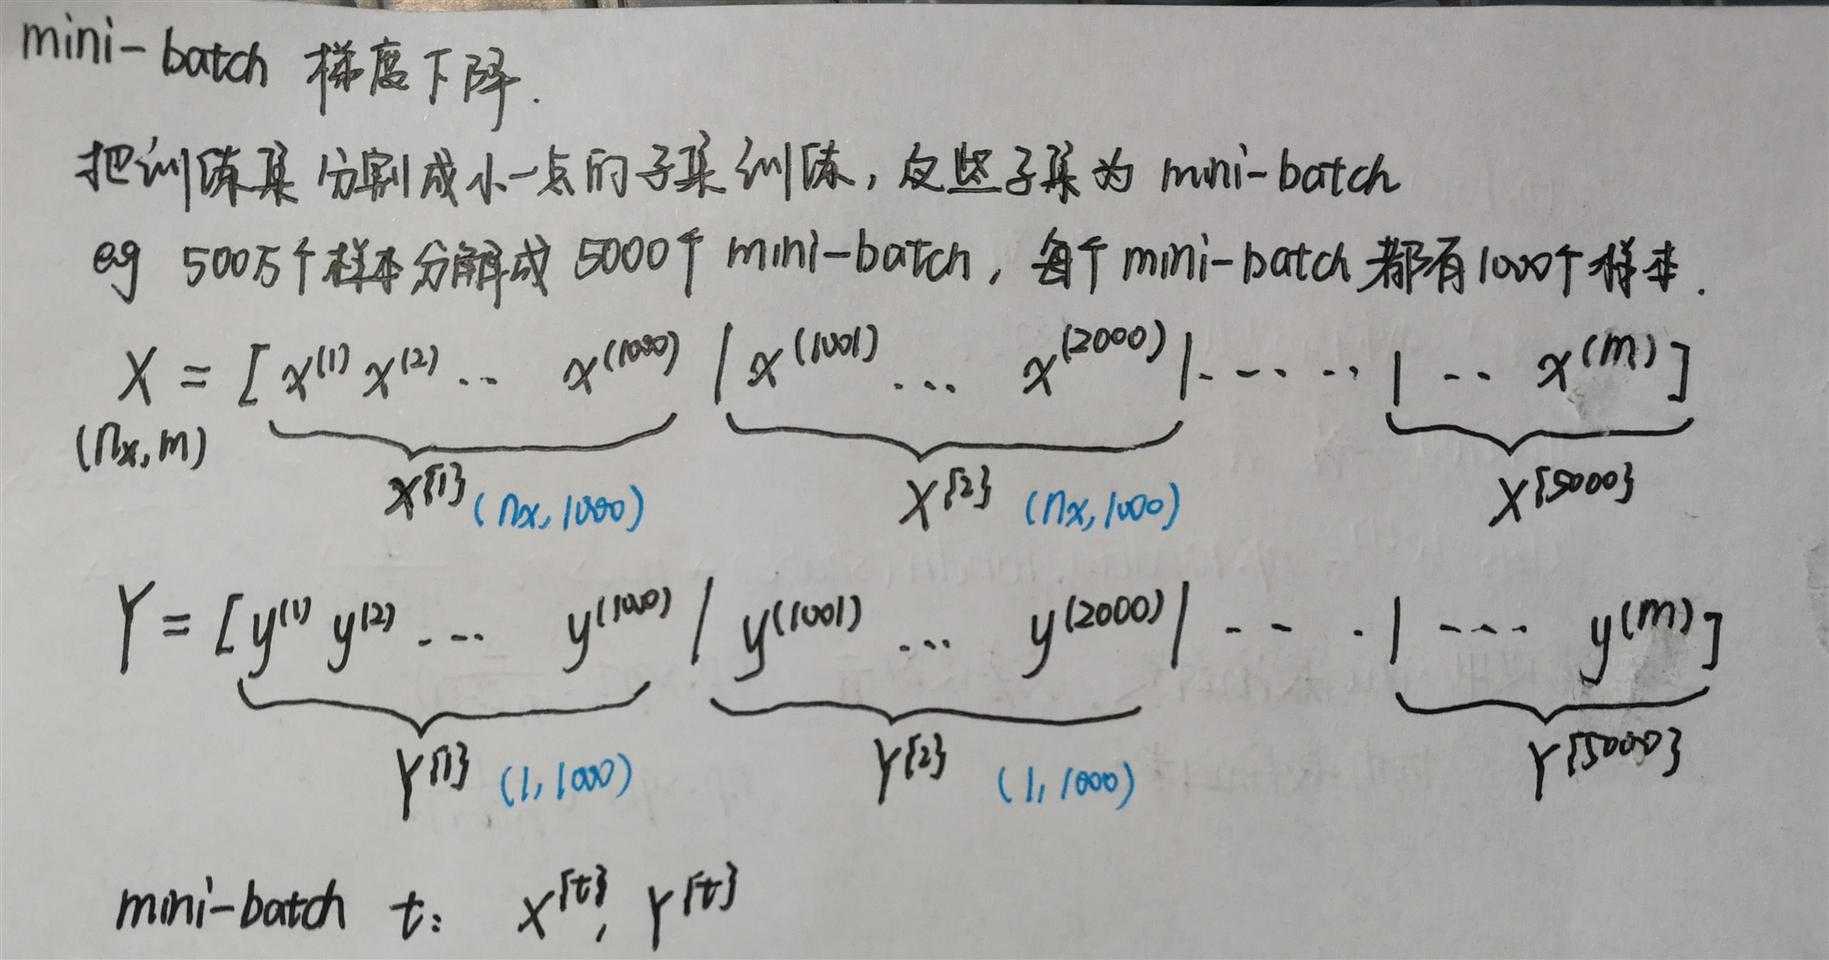 mini-batch 梯度下降.
把训练集分割成小一点的子集训练，这些子集为 mini-batch
eg 500万个样本分解成 5000个 mini-batch，每个 mini-batch 都有1000个样本.
X = [ x^(1) x^(2) .. x^(1000) | x^(1001) ... x^(2000) | ..... | .. x^(m) ]
(nx, m)
X^{1} (nx, 1000) X^{2} (nx, 1000) X^{5000}
Y = [ y^(1) y^(2) ... y^(1000) | y^(1001) ... y^(2000) | ... | ... y^(m) ]
Y^{1} (1, 1000) Y^{2} (1, 1000) Y^{5000}
mini-batch t: X^{t}, Y^{t}